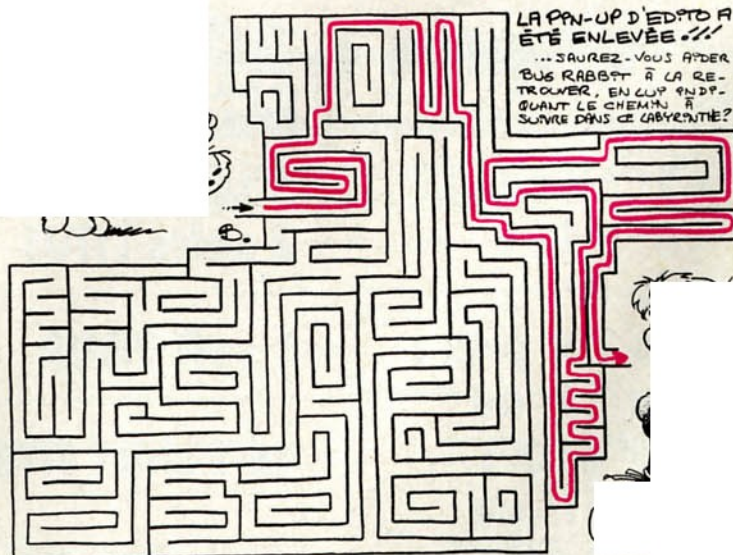 LA PIN-UP D'EDITO A
ÉTÉ ENLEVÉE !!!
...SAUREZ-VOUS AIDER
BUG RABBIT À LA RE-
TROUVER, EN LUI INDI-
QUANT LE CHEMIN À
SUIVRE DANS CE LABYRINTHE?
B.